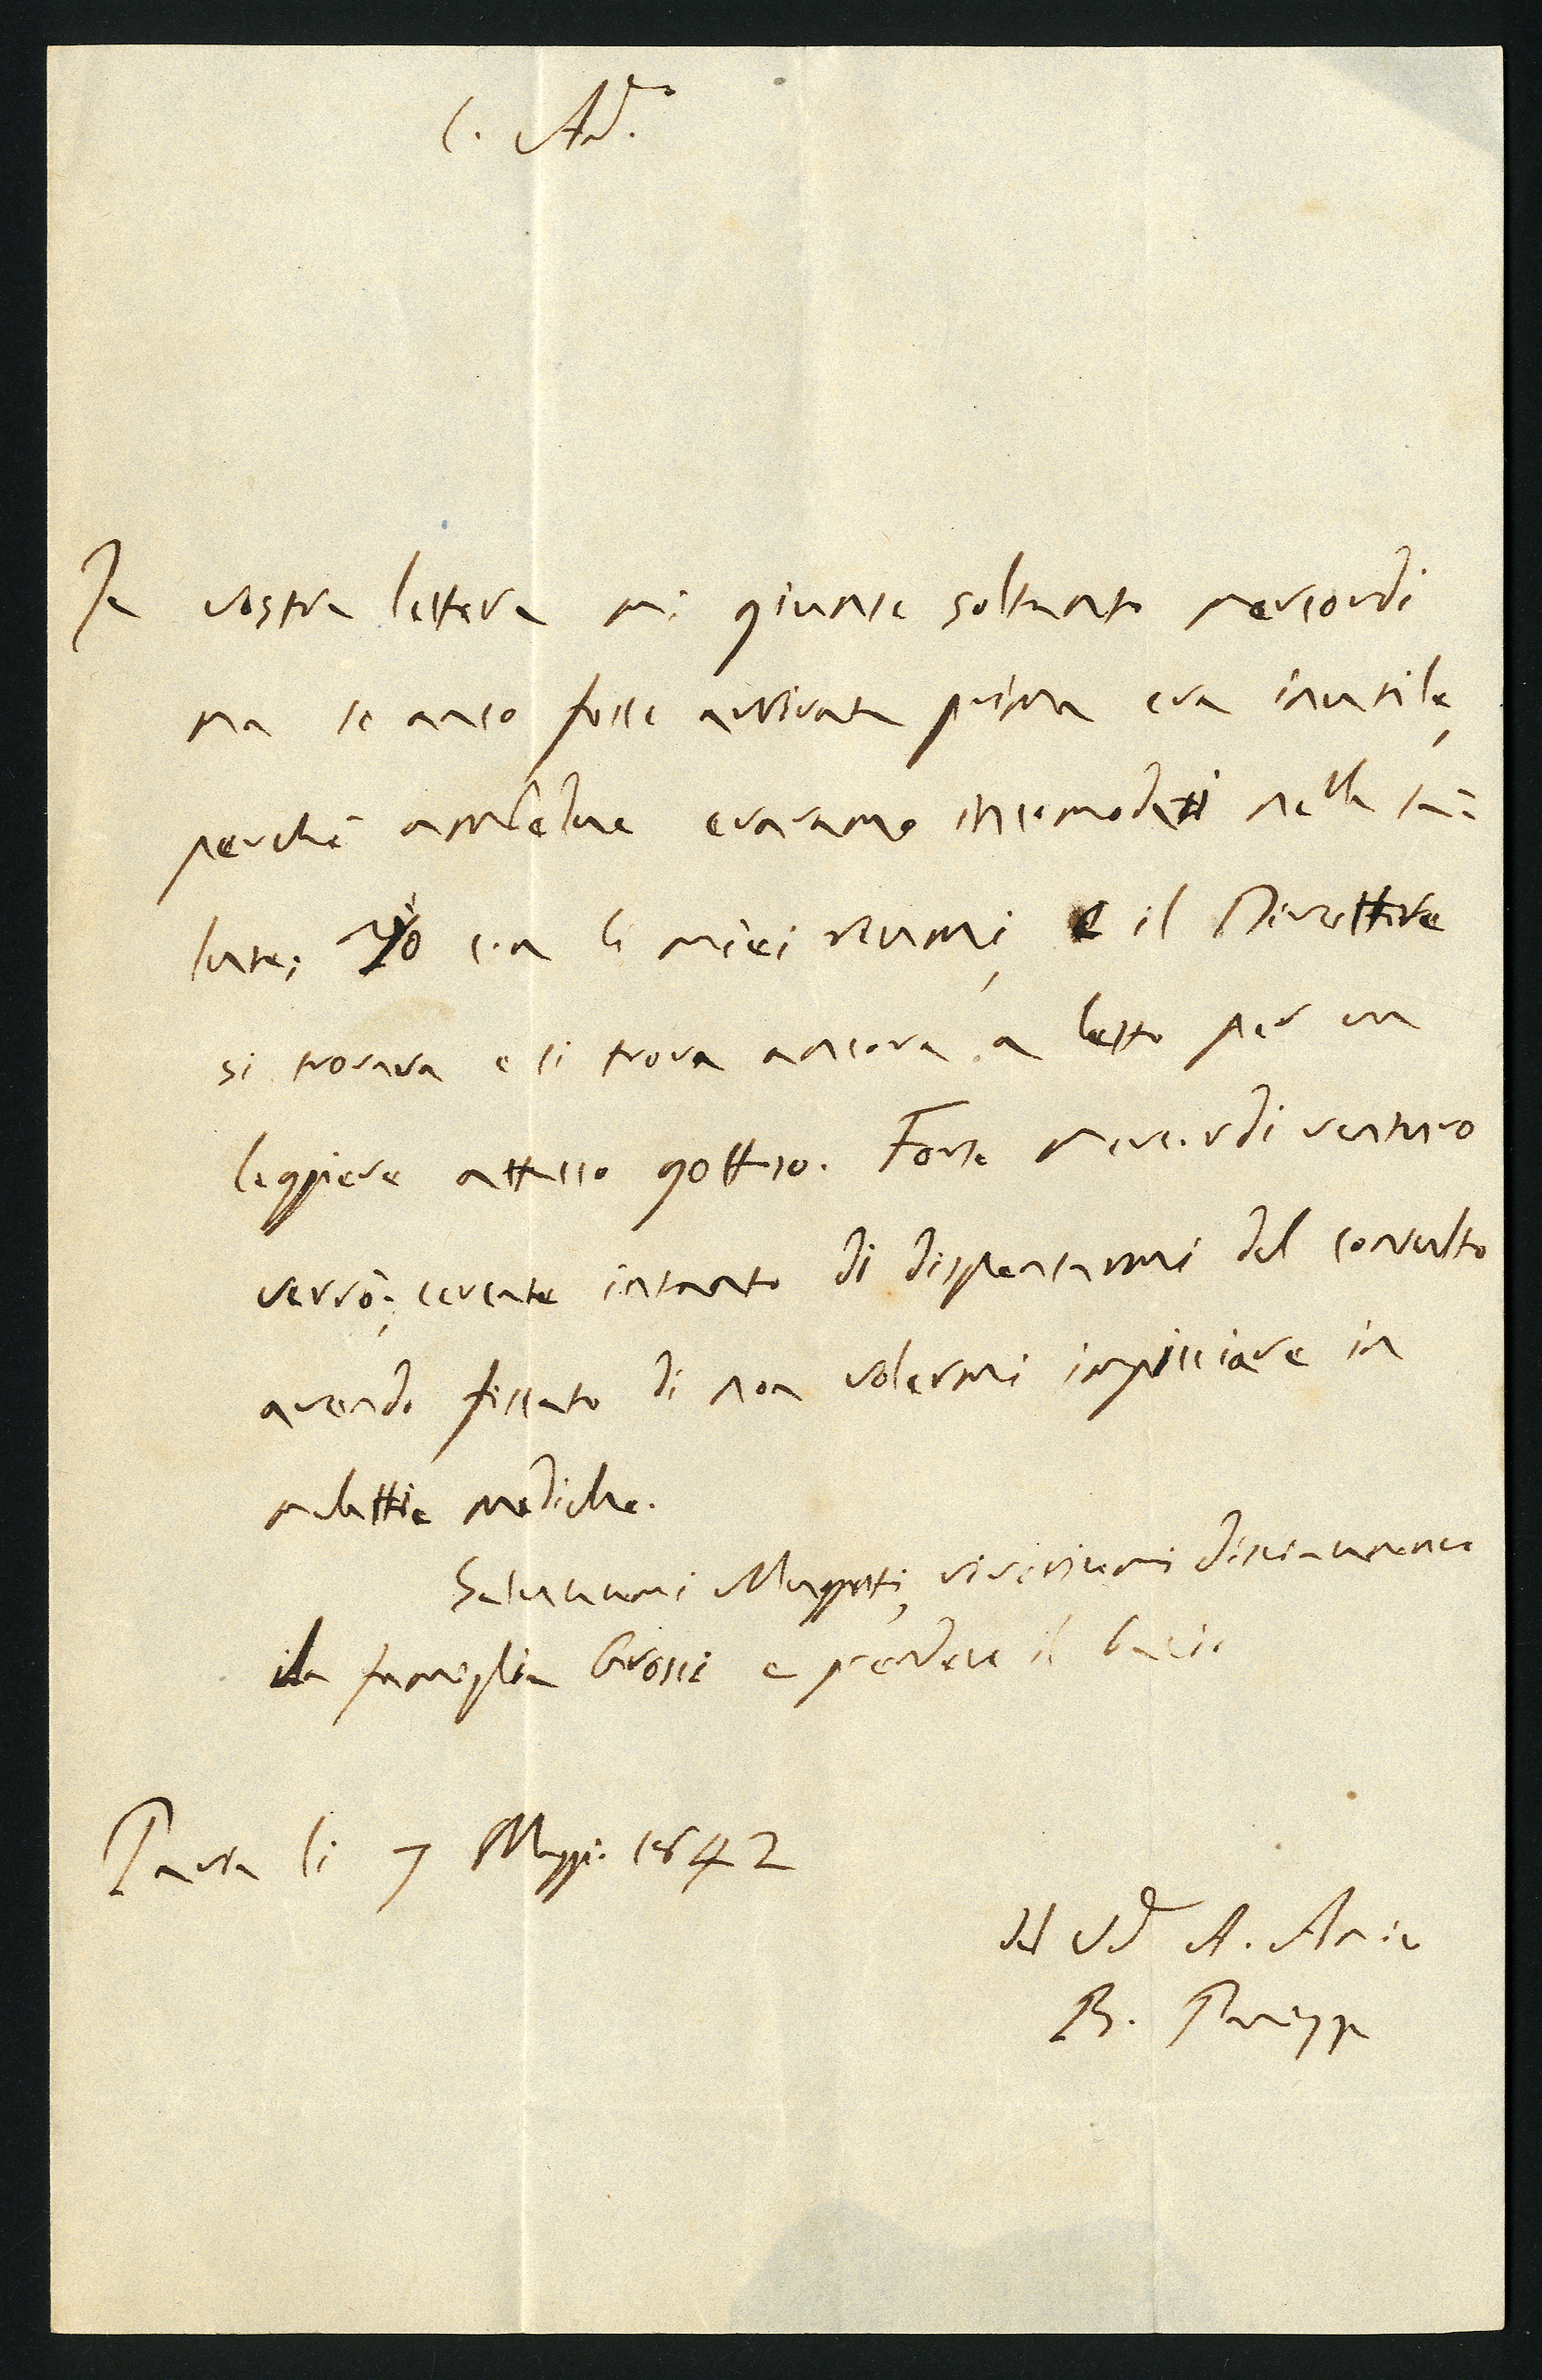 C. Ad.co
La vostra lettera mi giunse soltanto mercordi
ma se anco fosse arrivata prima era inutile,
perchè ambedue eravamo incomodati nella sa=
lute; Io con li miei reumi, e il Direttore
si trovava e si trova ancora a letto per un
leggiere attacco gottoso. Forse mercordi venturo
verrò; cercate intanto di dispensarmi dal consulto
avendo fissato di non volermi impicciare in
malattie mediche.
Salutatemi Muggetti, riveritemi distintamente
la famiglia Grossi e prendete il bacio
Pavia li 7 Maggio 1842
del A. Amico
B. Panizza